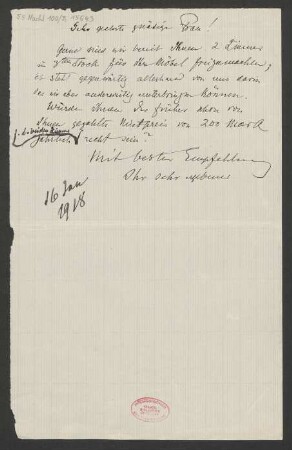 Sehr geehrte gnädige Frau!
Gern sind wir bereit Ihnen 2 Zimmer
im 3ten Stock für den Möbel freizumachen;
es steht gegenwärtig allerhand von uns darin
das wir aber anderweitig unterbringen können.
Würde Ihnen der früher schon von
Ihnen gezahlte Mietpreis von 200 Mark
jährlich recht sein?
Mit besten Empfehlungen
Ihr sehr ergebener
16 Jan
1918